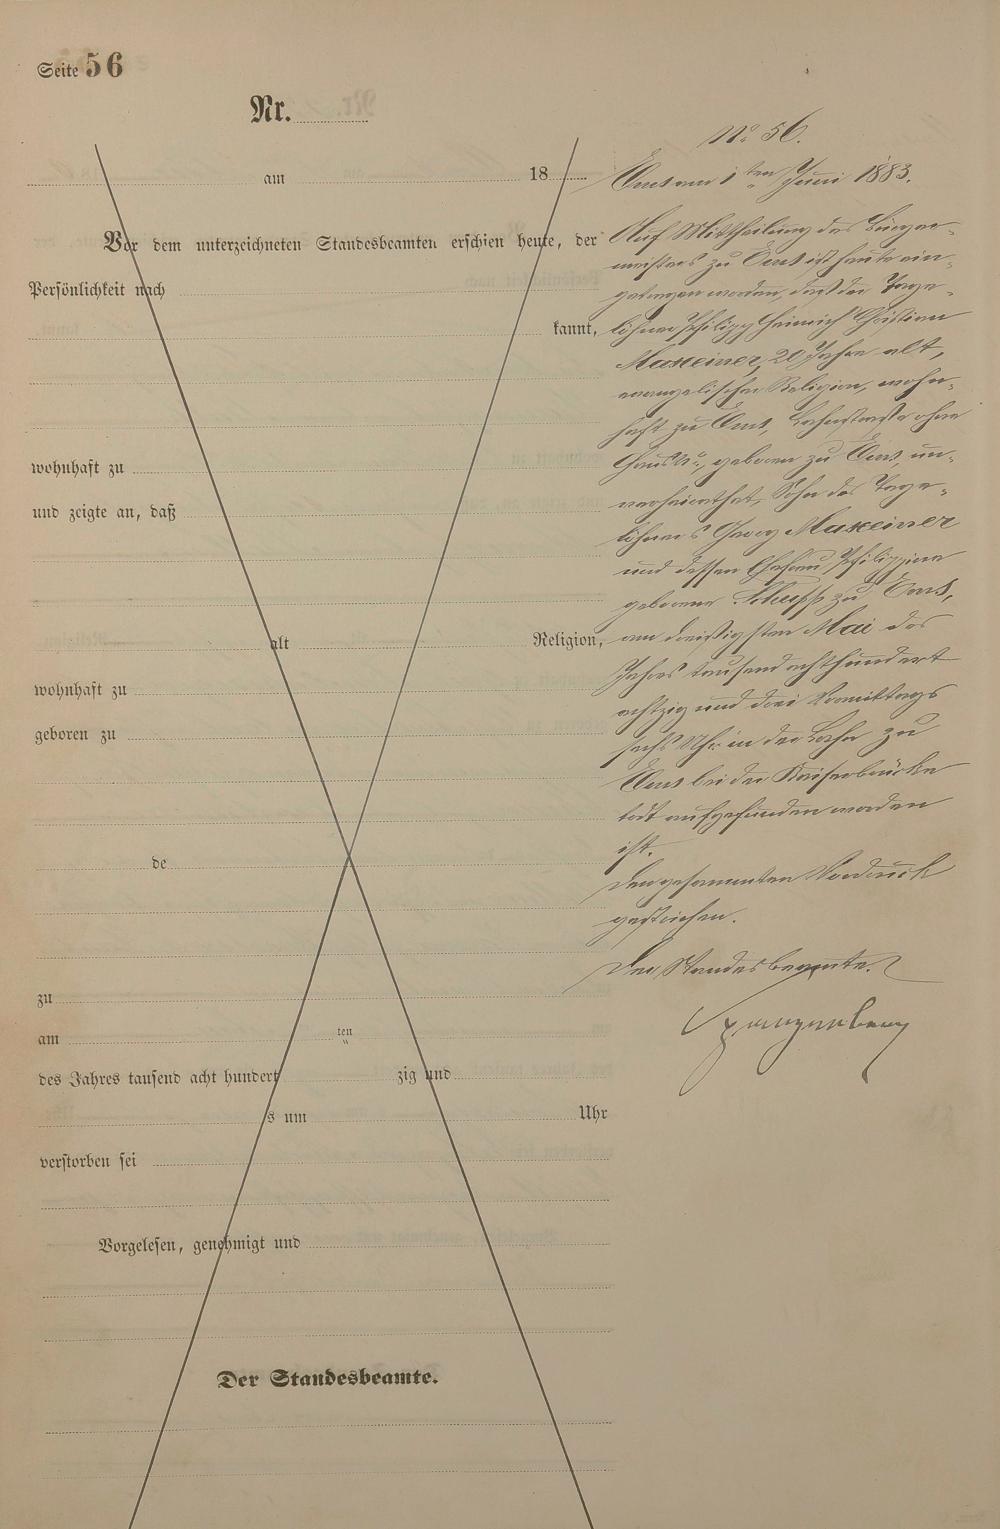 Seite 56
Nr.
am 18
Vor dem unterzeichneten Standesbeamten erschien heute, der
Persönlichkeit nach
kannt,
wohnhaft zu
und zeigte an, daß
alt Religion,
wohnhaft zu
geboren zu
de
zu
am ten
des Jahres tausend acht hundert zig und
s um Uhr
verstorben sei
Vorgelesen, genehmigt und
Der Standesbeamte.
No 56.
Ems am 1ten Juni 1883.
Auf Mittheilung des Bürger-
meisters zu Ems ist heute ein-
getragen worden, daß der Tage-
löhner Philipp Heinrich Christian
Maxeiner, 20 Jahre alt,
evangelischer Religion, wohn-
haft zu Ems, Lahnstraße ohne
Haus No, geboren zu Ems, un-
verheirathet, Sohn des Tage-
löhners Georg Maxeiner
und dessen Ehefrau Philippine
geborene Schupp zu Ems,
am dreißigsten Mai des
Jahres tausend achthundert
achtzig und drei Vormittags
sechs Uhr in der Lahn zu
Ems bei der Kaiserbrücke
todt aufgefunden worden
ist.
Den gesammten Vordruck
gestrichen.
Der Standesbeamte.
Spangenberg